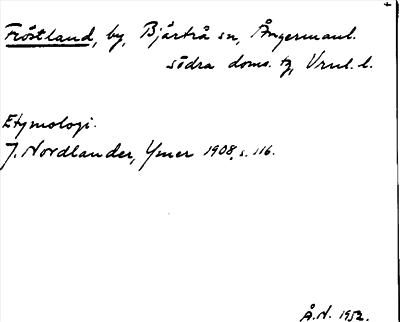 Fröstland, by, Bjärtrå sn, Ångermanl.
södra doms. tg, Vrnl. l.
Etymologi.
J. Nordlander, Ymer 1908, s. 116.
Å.N. 1952.